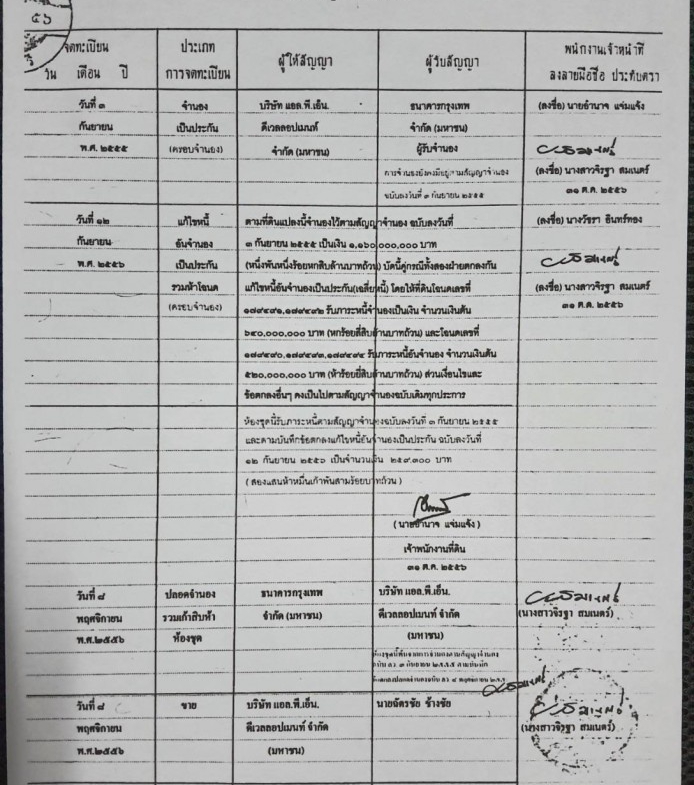 ๕๖
จดทะเบียน
วัน เดือน ปี
ประเภท
การจดทะเบียน
ผู้ให้สัญญา
ผู้รับสัญญา
พนักงานเจ้าหน้าที่
ลงลายมือชื่อ ประทับตรา
วันที่ ๓
กันยายน
พ.ศ. ๒๕๕๕
จำนอง
เป็นประกัน
(ครอบจำนอง)
บริษัท แอล.พี.เอ็น.
ดีเวลลอปเมนท์
จำกัด (มหาชน)
ธนาคารกรุงเทพ
จำกัด (มหาชน)
ผู้รับจำนอง
การจำนองยังคงมีอยู่ตามสัญญาจำนอง
ฉบับลงวันที่ ๓ กันยายน ๒๕๕๕
(ลงชื่อ) นายอำนาจ แจ่มแจ้ง
(ลงชื่อ) นางสาวจิรฐา สมเนตร์
๓๑ ต.ค. ๒๕๕๖
วันที่ ๑๒
กันยายน
พ.ศ. ๒๕๕๖
แก้ไขหนี้
อันจำนอง
เป็นประกัน
รวมห้าโฉนด
(ครอบจำนอง)
ตามที่ดินแปลงนี้จำนองไว้ตามสัญญาจำนอง ฉบับลงวันที่
๓ กันยายน ๒๕๕๕ เป็นเงิน ๑,๑๖๐,๐๐๐,๐๐๐ บาท
(หนึ่งพันหนึ่งร้อยหกสิบล้านบาทถ้วน) บัดนี้คู่กรณีทั้งสองฝ่ายตกลงกัน
แก้ไขหนี้อันจำนองเป็นประกัน(เฉลี่ยหนี้) โดยให้ที่ดินโฉนดเลขที่
๑๗๙๔๙๑,๑๗๙๔๙๒ รับภาระหนี้จำนองเป็นเงิน จำนวนเงินต้น
๖๔๐,๐๐๐,๐๐๐ บาท (หกร้อยสี่สิบล้านบาทถ้วน) และโฉนดเลขที่
๑๗๙๔๙๐,๑๗๙๔๙๓,๑๗๙๔๙๔ รับภาระหนี้อันจำนอง จำนวนเงินต้น
๕๒๐,๐๐๐,๐๐๐ บาท (ห้าร้อยยี่สิบล้านบาทถ้วน) ส่วนเงื่อนไขและ
ข้อตกลงอื่นๆ คงเป็นไปตามสัญญาจำนองฉบับเดิมทุกประการ
(ลงชื่อ) นางวัชรา อินทร์ทอง
(ลงชื่อ) นางสาวจิรฐา สมเนตร์
๓๑ ต.ค. ๒๕๕๖
ห้องชุดนี้รับภาระหนี้ตามสัญญาจำนองฉบับลงวันที่ ๓ กันยายน ๒๕๕๕
และตามบันทึกข้อตกลงแก้ไขหนี้อันจำนองเป็นประกัน ฉบับลงวันที่
๑๒ กันยายน ๒๕๕๖ เป็นจำนวนเงิน ๒๕๙,๓๐๐ บาท
(สองแสนห้าหมื่นเก้าพันสามร้อยบาทถ้วน)
(นายอำนาจ แจ่มแจ้ง)
เจ้าพนักงานที่ดิน
๓๑ ต.ค. ๒๕๕๖
วันที่ ๘
พฤศจิกายน
พ.ศ.๒๕๕๖
ปลอดจำนอง
รวมเก้าสิบห้า
ห้องชุด
ธนาคารกรุงเทพ
จำกัด (มหาชน)
บริษัท แอล.พี.เอ็น.
ดีเวลลอปเมนท์ จำกัด
(มหาชน)
(นางสาวจิรฐา สมเนตร์)
วันที่ ๘
พฤศจิกายน
พ.ศ.๒๕๕๖
ขาย
บริษัท แอล.พี.เอ็น.
ดีเวลลอปเมนท์ จำกัด
(มหาชน)
นายฉัตรชัย ช้างชัย
(นางสาวจิรฐา สมเนตร์)